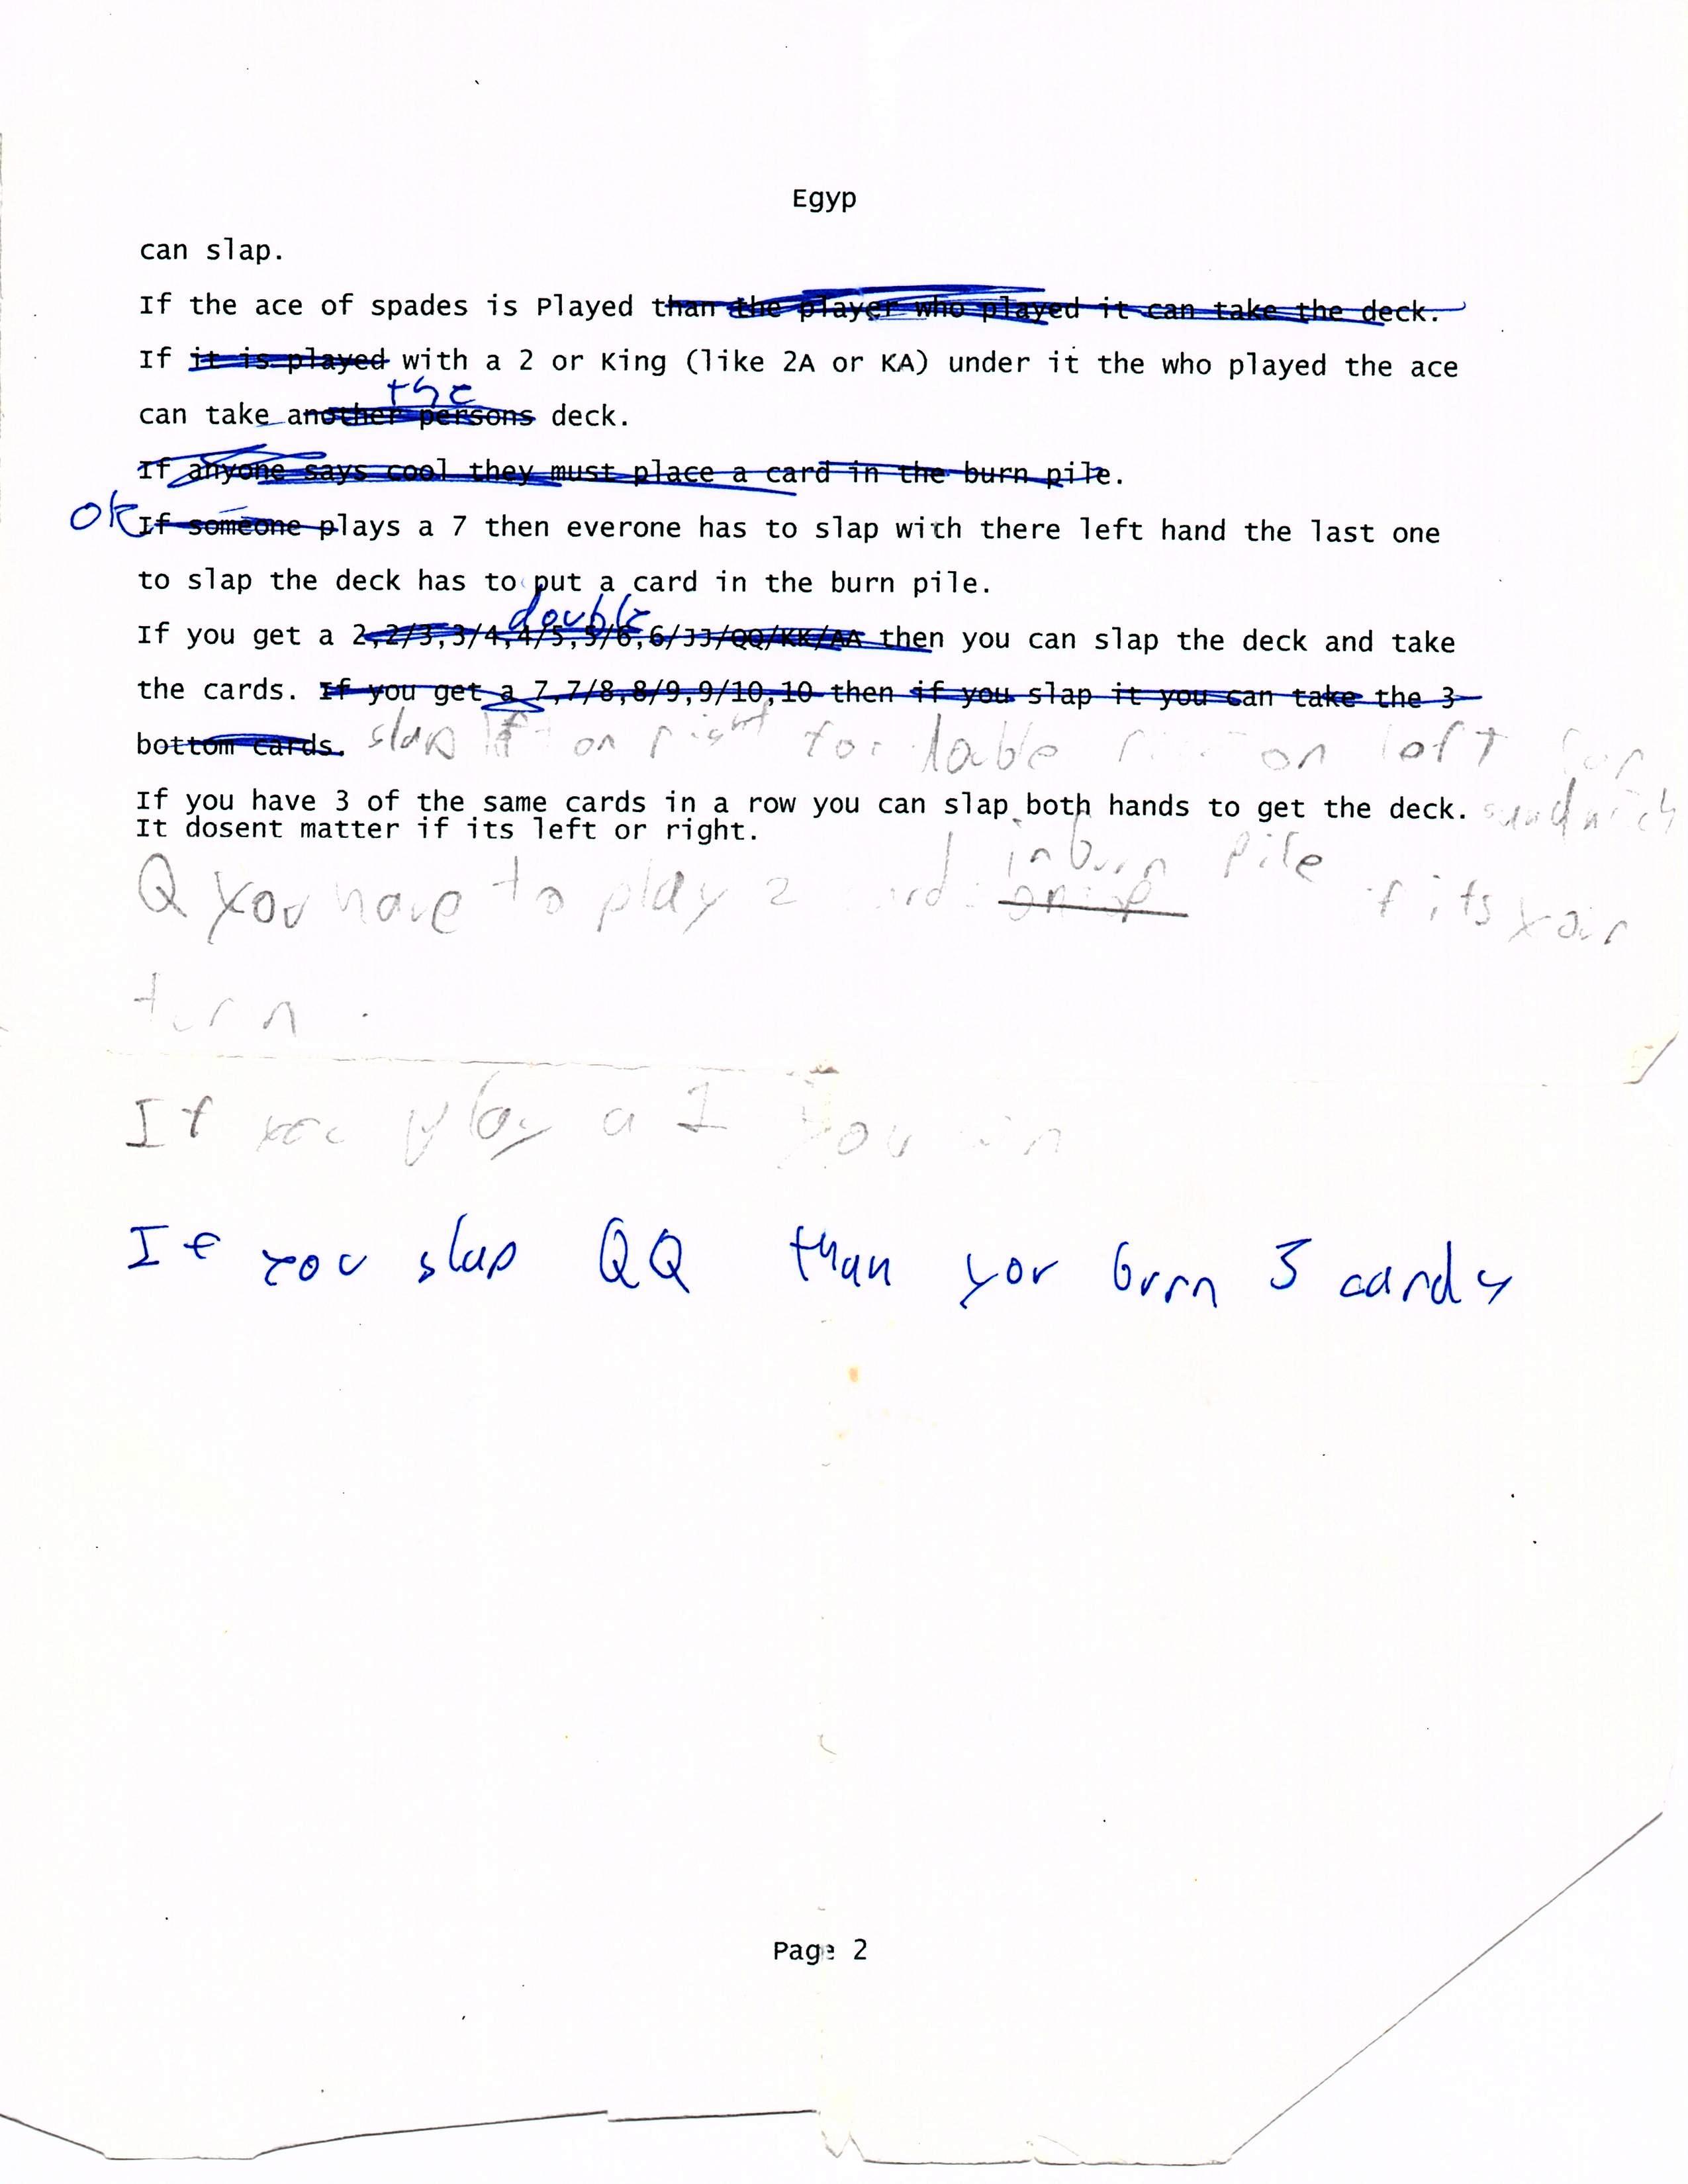 Egyp
can slap.
If the ace of spades is Played than the player who played it can take the deck.
If it is played with a 2 or King (like 2A or KA) under it the who played the ace
the
can take another persons deck.
If anyone says cool they must place a card in the burn pile.
ok If someone plays a 7 then everone has to slap with there left hand the last one
to slap the deck has to put a card in the burn pile.
double
If you get a 2,2/3,3/4,4/5,5/6,6/JJ/QQ/KK/AA then you can slap the deck and take
the cards. If you get a 7,7/8,8/9,9/10,10 then if you slap it you can take the 3
bottom cards. slap if on right for on left for
If you have 3 of the same cards in a row you can slap both hands to get the deck. sandwich
It dosent matter if its left or right.
in burn pile
Q You have to play 2 if its your
turn.
If you play a you
If you slap QQ than you burn 3 cards
Page 2